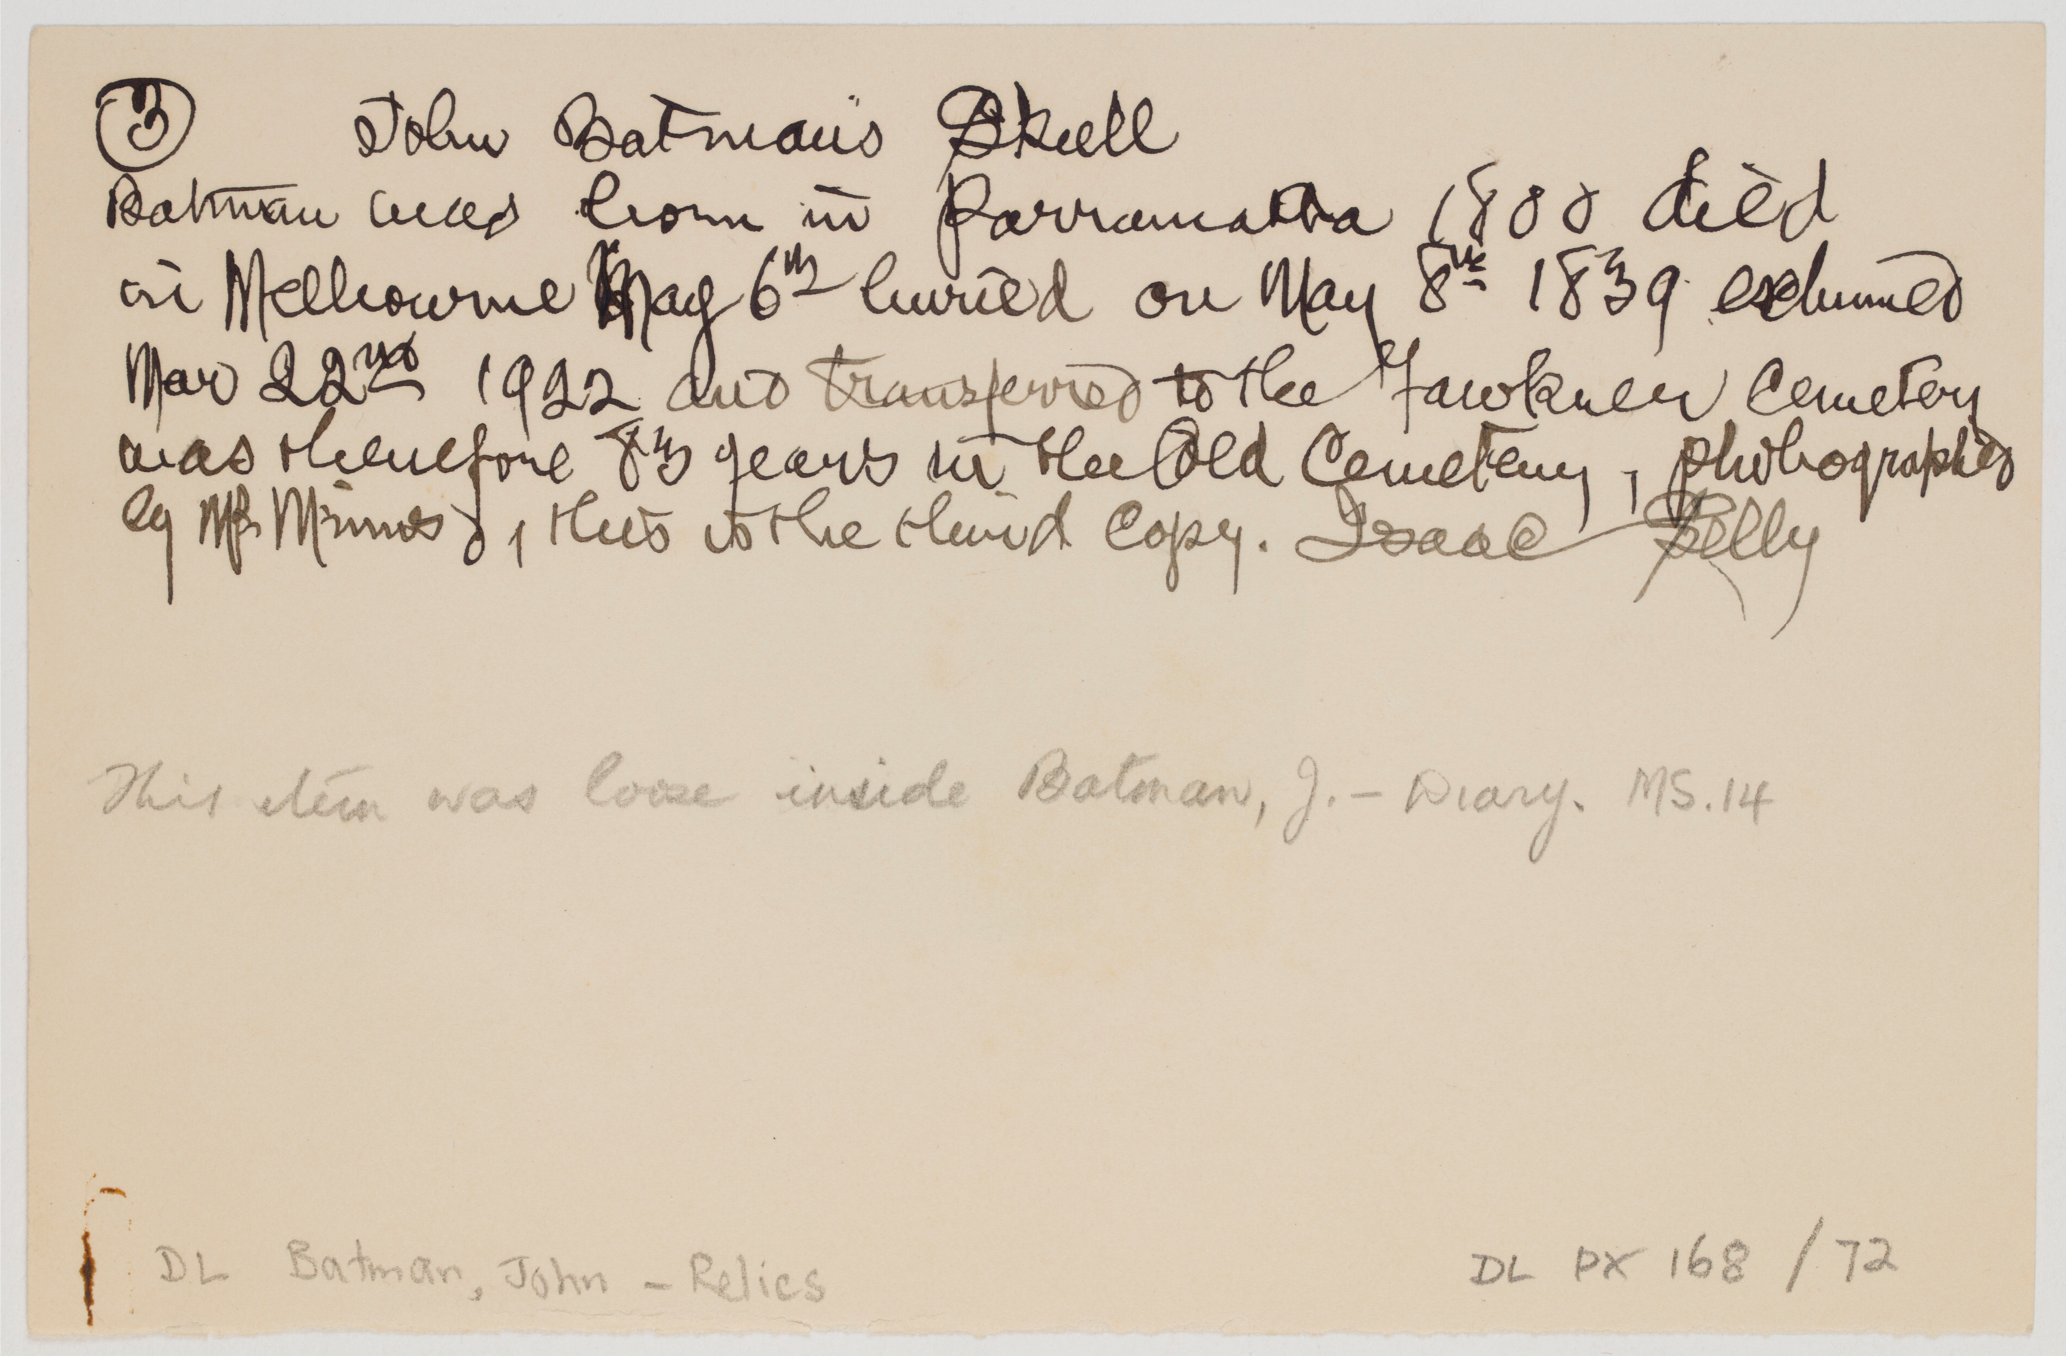 3 John Batman's Skull
Batman was born in Parramatta 1800 died
in Melbourne May 6th buried on May 8th 1839 exhumed
Mar 22nd 1922 and transferred to the Fawkner Cemetery
was therefore 83 years in the Old Cemetery, photographed
by Mr , this is the third Copy. Isaac Selby
This item was loose inside Batman, J. - Diary. MS.14
DL Batman, John - Relics
DL PX 168 / 72